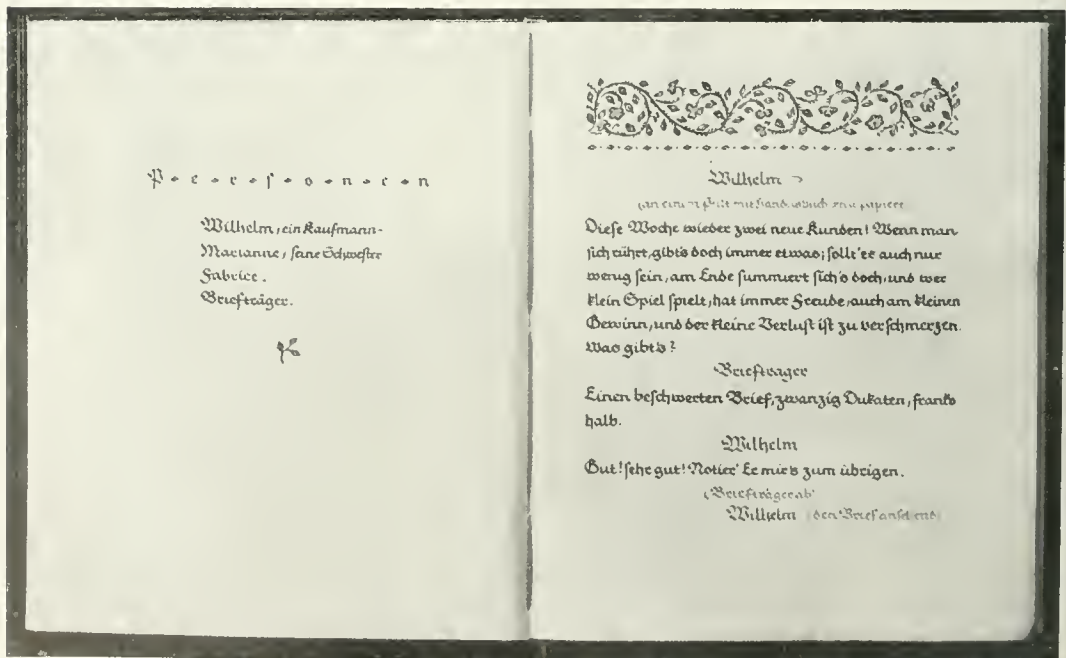 P·e·r·ſ·o·n·e·n
Wilhelm, ein Kaufmann.
Marianne, ſeine Schweſter
Fabrice.
Briefträger.
Wilhelm
(an einem Pult mit Handelsbuch und Papiere
Dieſe Woche wieder zwei neue Kunden! Wenn man
ſich rührt, gibt's doch immer etwas; ſollt' es auch nur
wenig ſein, am Ende ſummiert ſich's doch, und wer
klein Spiel ſpielt, hat immer Freude, auch am kleinen
Gewinn, und der kleine Verluſt iſt zu verſchmerzen.
Was gibt's?
Briefträger
Einen beſchwerten Brief, zwanzig Dukaten, franko
halb.
Wilhelm
Gut! ſehr gut! Notier' Er mir's zum übrigen.
(Briefträger ab)
Wilhelm (den Brief anſehend)